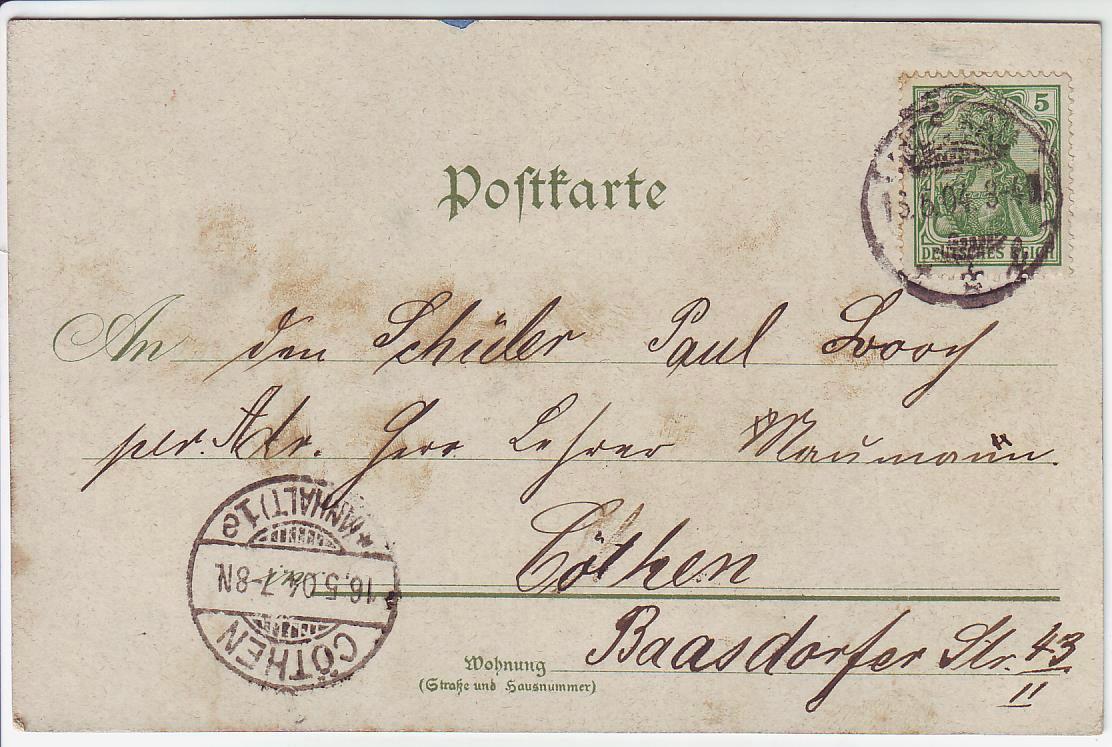 Postkarte
5 5
DEUTSCHES REICH
5.04 8-
An den Schüler Paul
per. Adr. Herr Lehrer Naumann.
Cöthen
Wohnung Baasdorfer Str. 43
(Straße und Hausnummer) II
CÖTHEN
16.5.04.7-8N.
(ANHALT) 1e